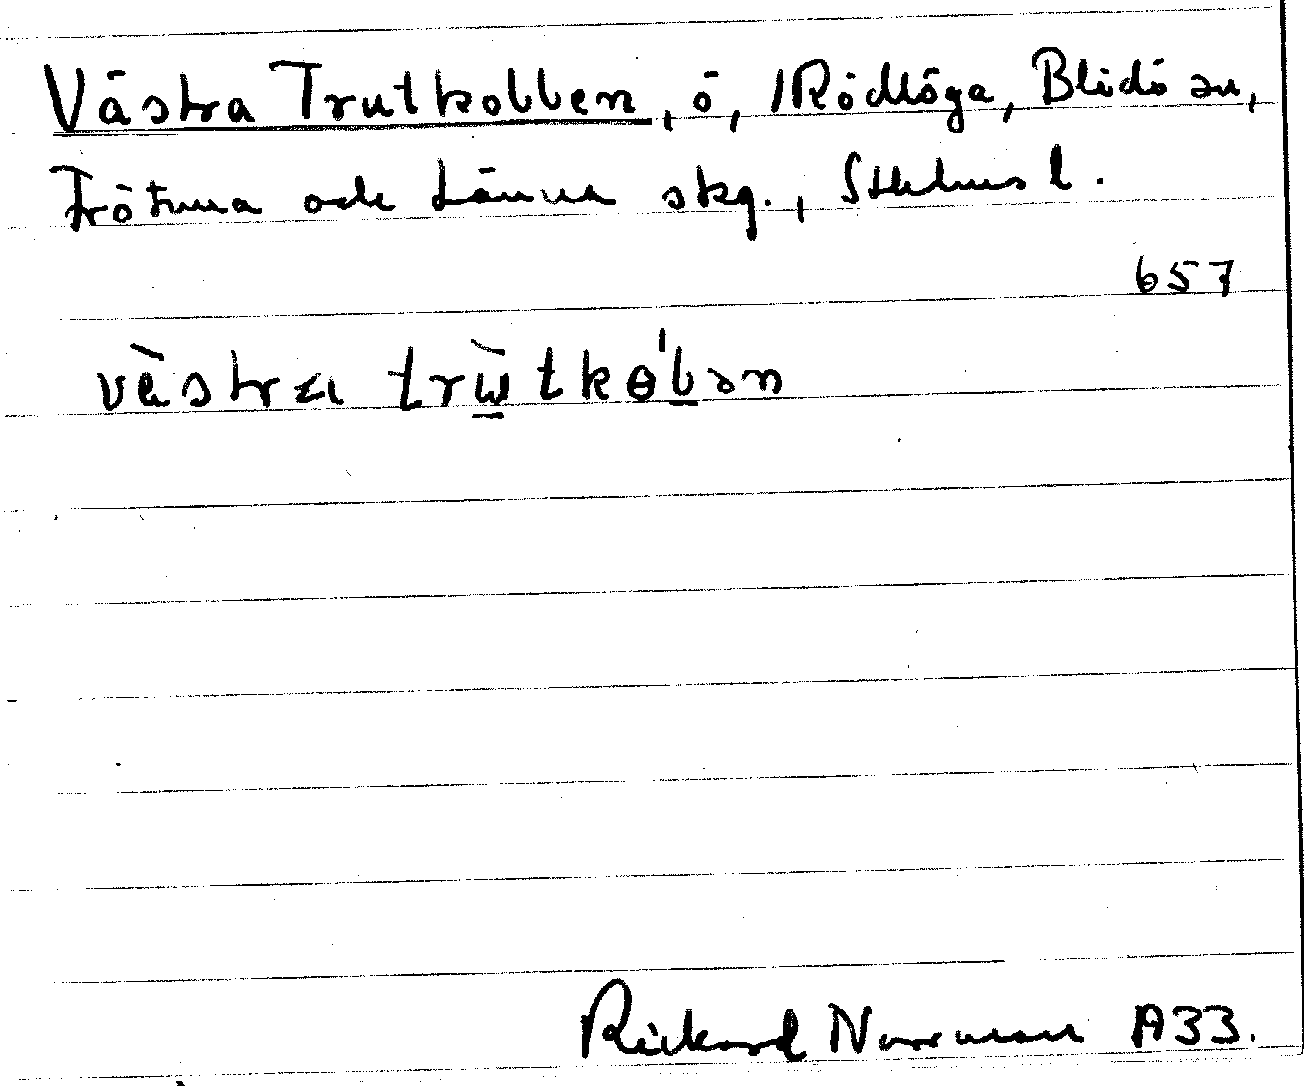 Västra Trutkobben, ö, /Rödlöga, Blidö sn,
Frötuna och Länna skg., Sthlms l.
657
vàstra trɯ̀tkɵ'bən
Rickard Norrman A33.